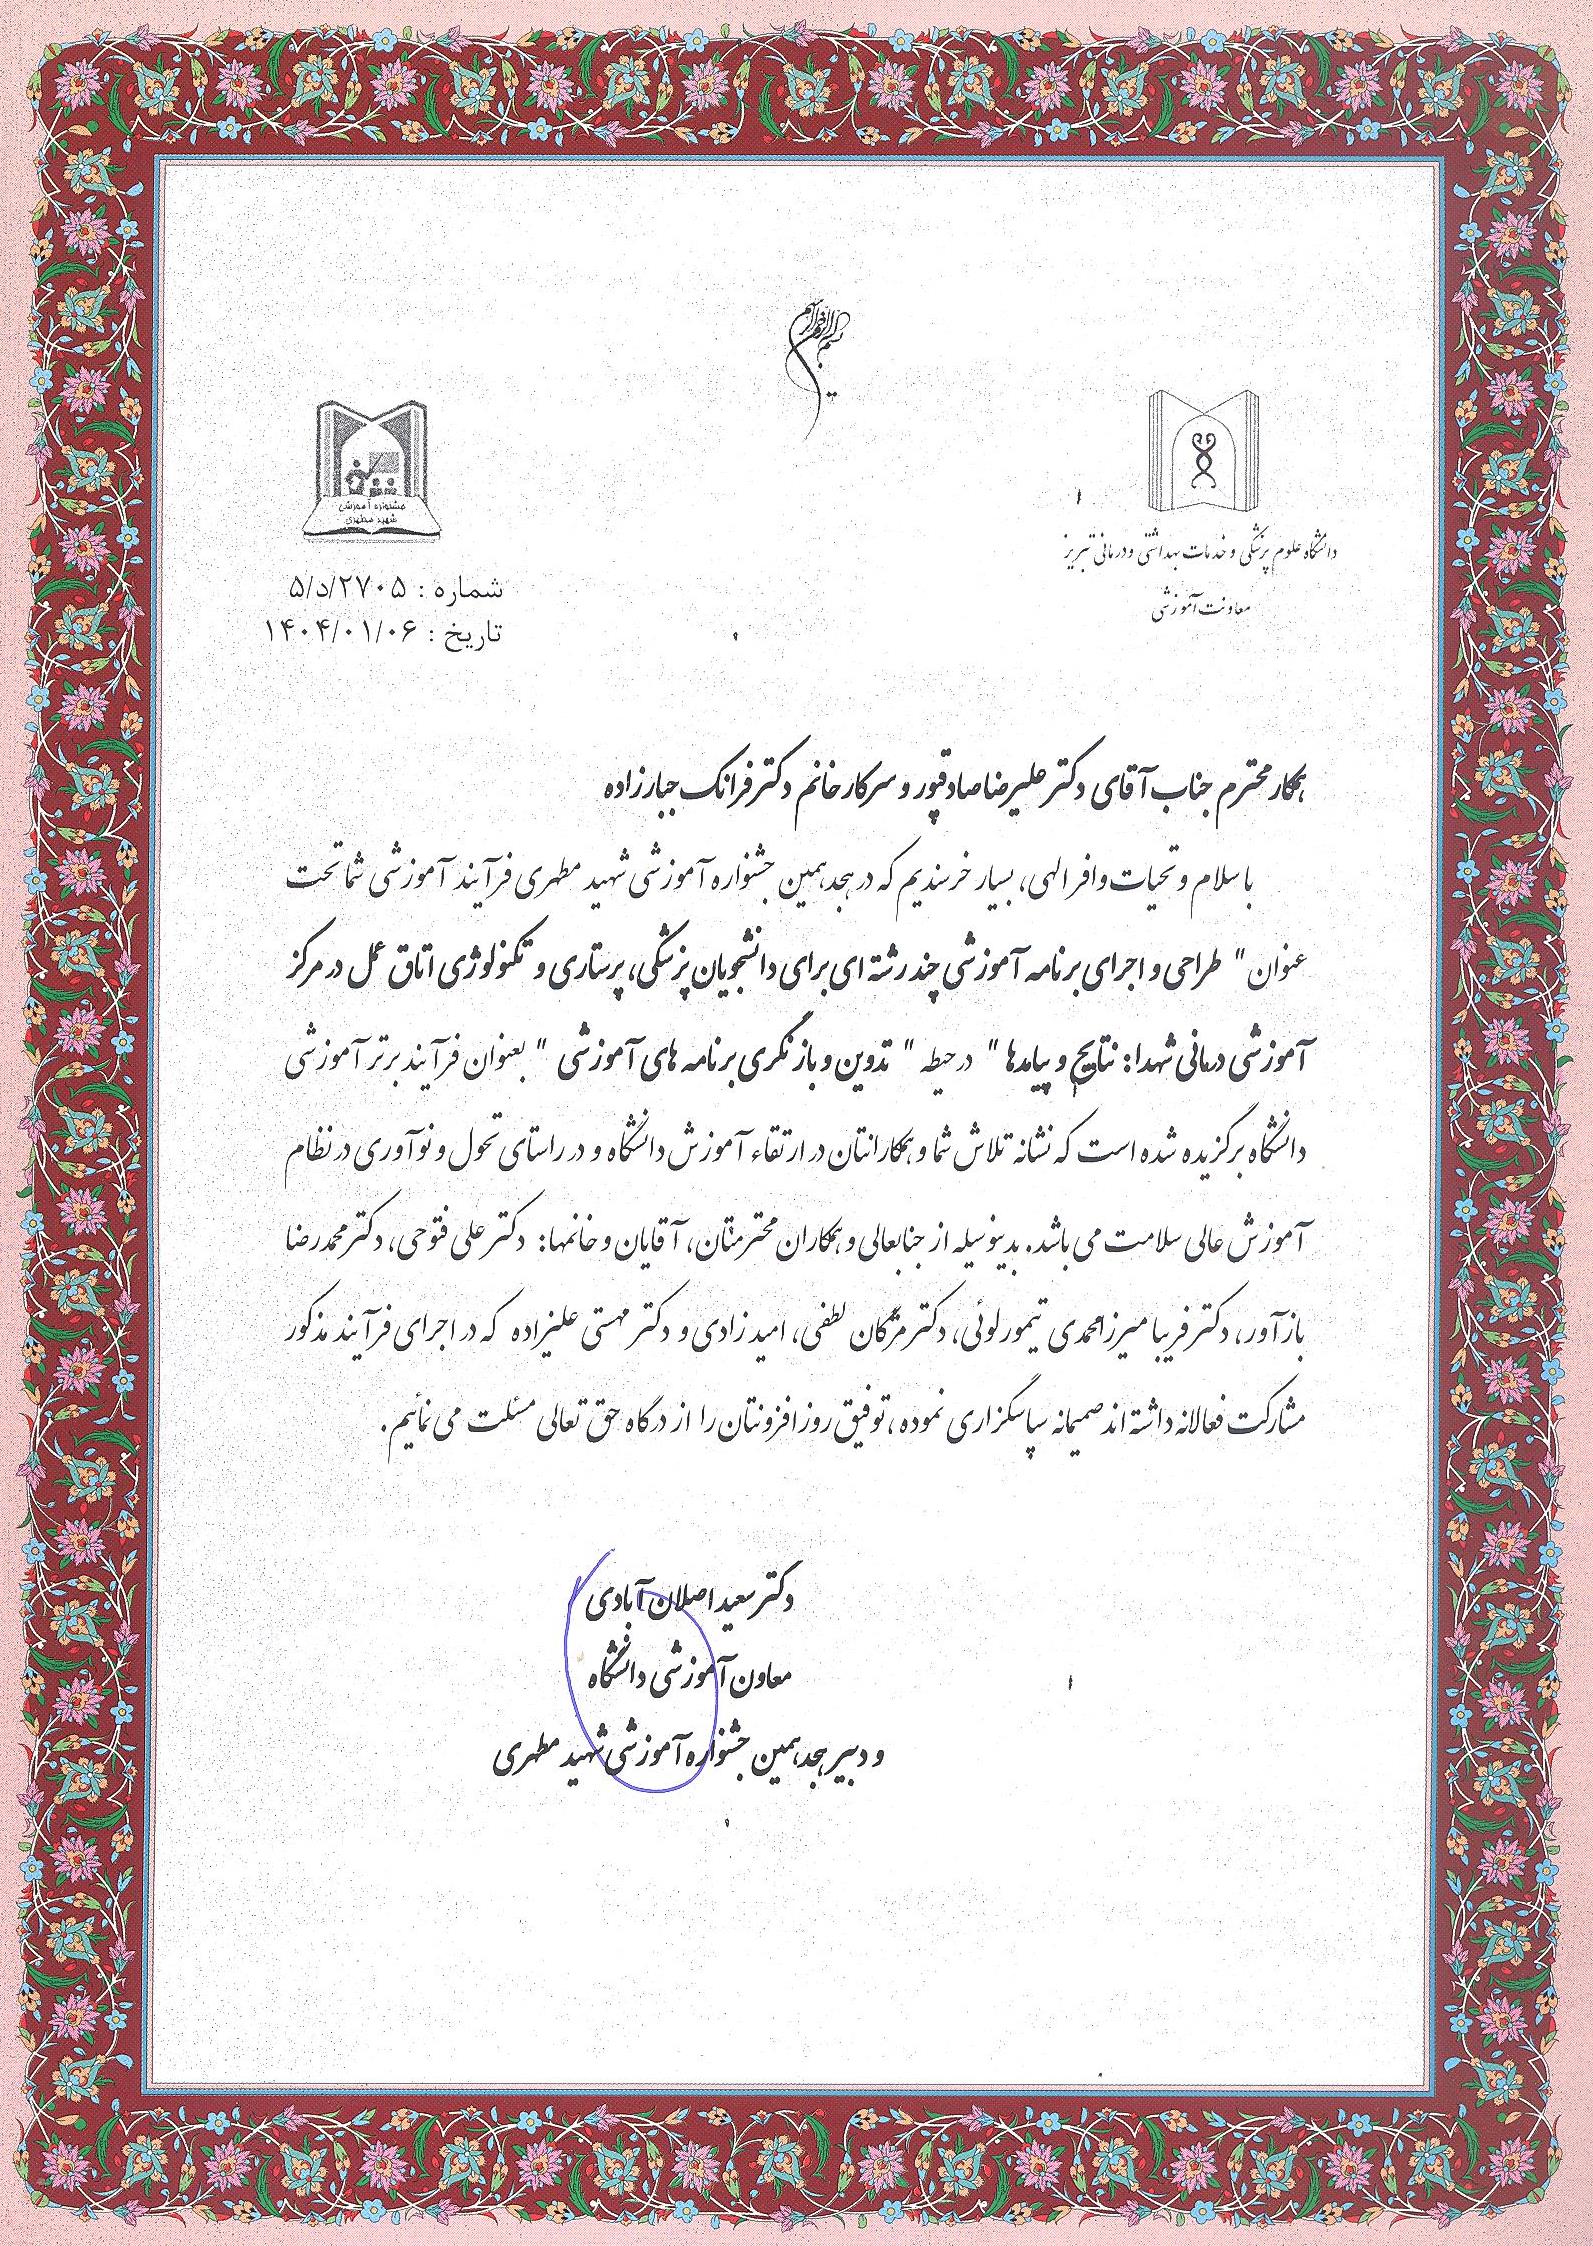 بسم الله الرحمن الرحیم
دانشگاه علوم پزشکی و خدمات بهداشتی و درمانی تبریز
معاونت آموزشی
جشنواره آموزشی
شهید مطهری
شماره : ۵/د/۲۷۰۵
تاریخ : ۱۴۰۴/۰۱/۰۶
همکار محترم جناب آقای دکتر علیرضا صادقپور و سرکار خانم دکتر فرانک جبارزاده
با سلام و تحیات وافر الهی، بسیار خرسندیم که در هجدهمین جشنواره آموزشی شهید مطهری فرآیند آموزشی شما تحت
عنوان " طراحی و اجرای برنامه آموزشی چند رشته ای برای دانشجویان پزشکی، پرستاری و تکنولوژی اتاق عمل در مرکز
آموزشی درمانی شهدا: نتایج و پیامدها " در حیطه " تدوین و بازنگری برنامه های آموزشی " بعنوان فرآیند برتر آموزشی
دانشگاه برگزیده شده است که نشانه تلاش شما و همکارانتان در ارتقاء آموزش دانشگاه و در راستای تحول و نوآوری در نظام
آموزش عالی سلامت می باشد. بدینوسیله از جنابعالی و همکاران محترمتان، آقایان و خانمها: دکتر علی فتوحی، دکتر محمدرضا
بازآور، دکتر فریبا میرزامحمدی تیمورلوئی، دکتر مژگان لطفی، امید زادی و دکتر مهستی علیزاده که در اجرای فرآیند مذکور
مشارکت فعالانه داشته اند صمیمانه سپاسگزاری نموده، توفیق روزافزونتان را از درگاه حق تعالی مسئلت می نمائیم.
دکتر سعید اصلان آبادی
معاون آموزشی دانشگاه
و دبیر هجدهمین جشنواره آموزشی شهید مطهری